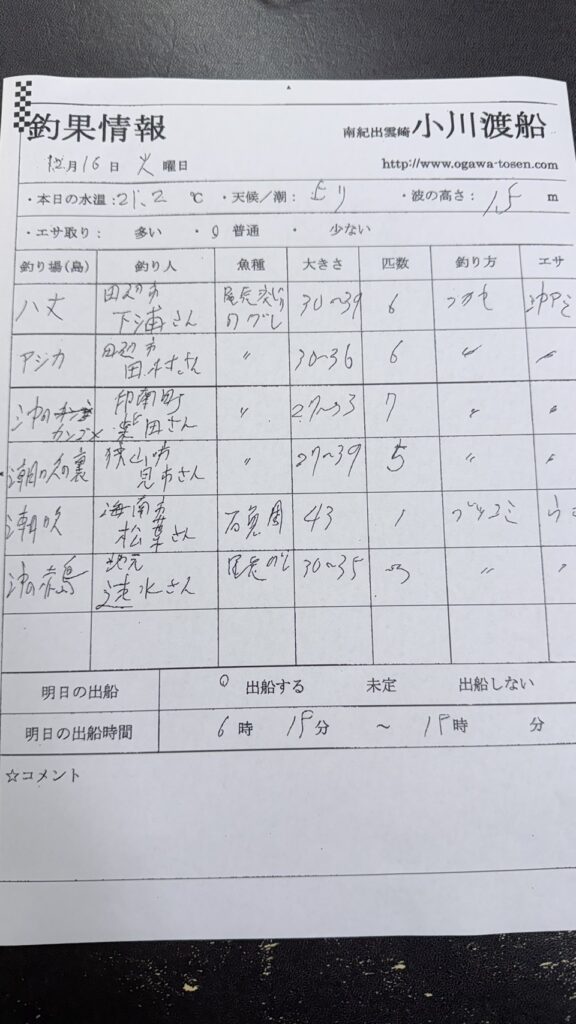 釣果情報 南紀出雲崎 小川渡船
12月16日 火曜日 http://www.ogawa-tosen.com
・本日の水温:21.2 ℃ ・天候/潮: ・波の高さ: 1.5 m
・エサ取り: 多い ・ ○ 普通 ・ 少ない
釣り場(島) 釣り人 魚種 大きさ 匹数 釣り方 エサ
八丈 田辺市 下浦さん 尾長交じり のグレ 30~39 6 フカセ 沖アミ
アシカ 田辺市 田村さん 〃 30~36 6 〃 〃
沖の カンゴメ 印南町 柴田さん 〃 27~33 7 〃 〃
潮吹の裏 狭山市 児市さん 〃 27~39 5 〃 〃
潮吹 海南市 松葉さん 石鯛 43 1 ブッコミ
沖の赤島 地元 速水さん 尾長グレ 30~35 3 〃 〃
明日の出船 ○ 出船する 未定 出船しない
明日の出船時間 6時 15分 ~ 15時 分
☆コメント